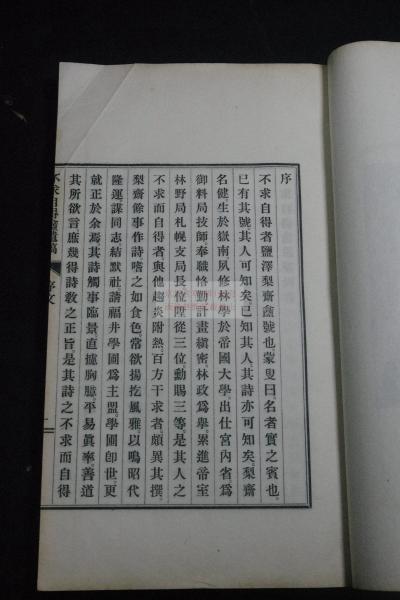 序
不求自得者鹽澤梨齋齋號也蒙叟曰名者實之賓也
已有其號其人可知矣已知其人其詩亦可知矣梨齋
名健生於嶽南夙修林學於帝國大學出仕宮內省爲
御料局技師奉職恪勤計畫縝密林政爲擧累進帝室
林野局札幌支局長位陞從三位勳賜三等是其人之
不求而自得者與他趨炎附熱百方干求者頗異其撰
梨齋餘事作詩嗜之如食色常欲揚扢風雅以鳴昭代
隆運謀同志結默社請福井學圃爲主盟學圃卽世更
就正於余焉其詩觸事臨景直攄胸臆平易眞率善道
其所欲言庶幾得詩敎之正旨是其詩之不求而自得
不求自得齋遺稿 序文 一